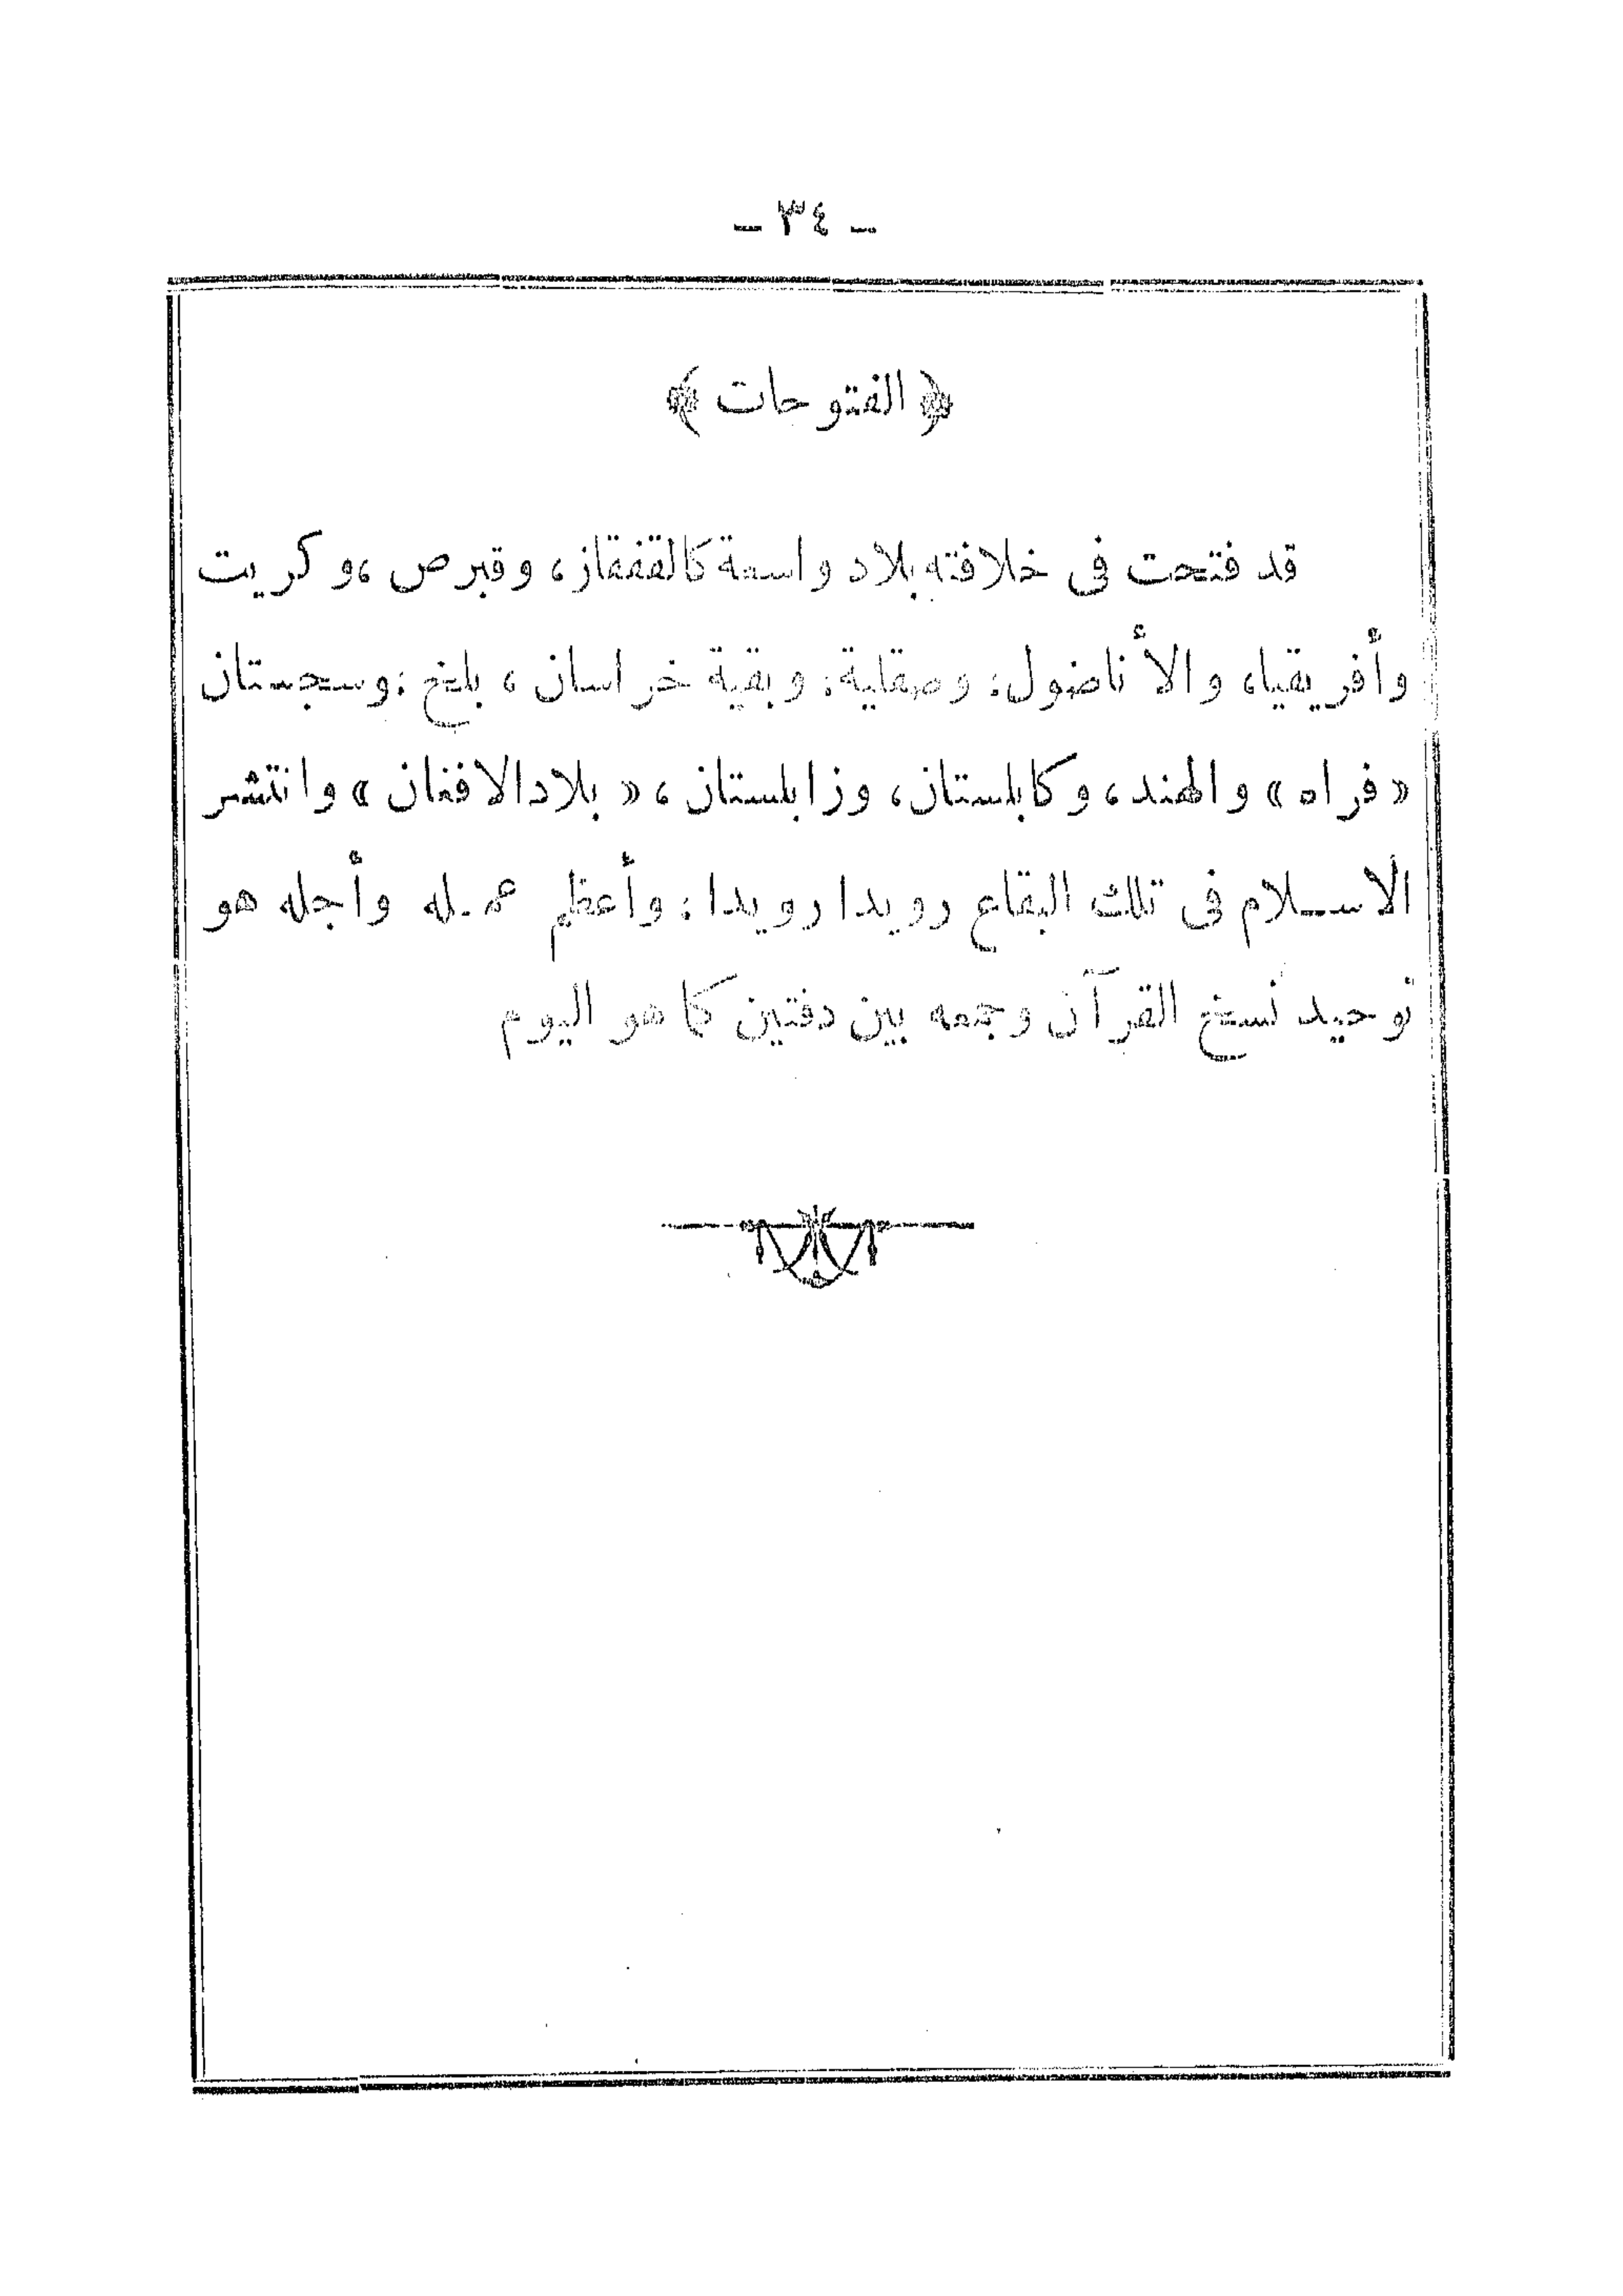 – ٣٤ –
﴿ الفتوحات ﴾
قد فتحت فى خلافته بلاد واسعة كالقفقاز، وقبرص ،وكريت
وأفريقيا، والأناضول؛ وصقلية؛ وبقية خراسان ، بلخ ؛وسجستان
«فراه» والهند، وكابلستان، وزابلستان ،« بلاد الافغان » وانتشر
الاسلام فى تلك البقاع رويدا رويدا ؛ وأعظم عمله وأجله هو
توحيد نسخ القرآن وجمعه بين دفتين كما هو اليوم